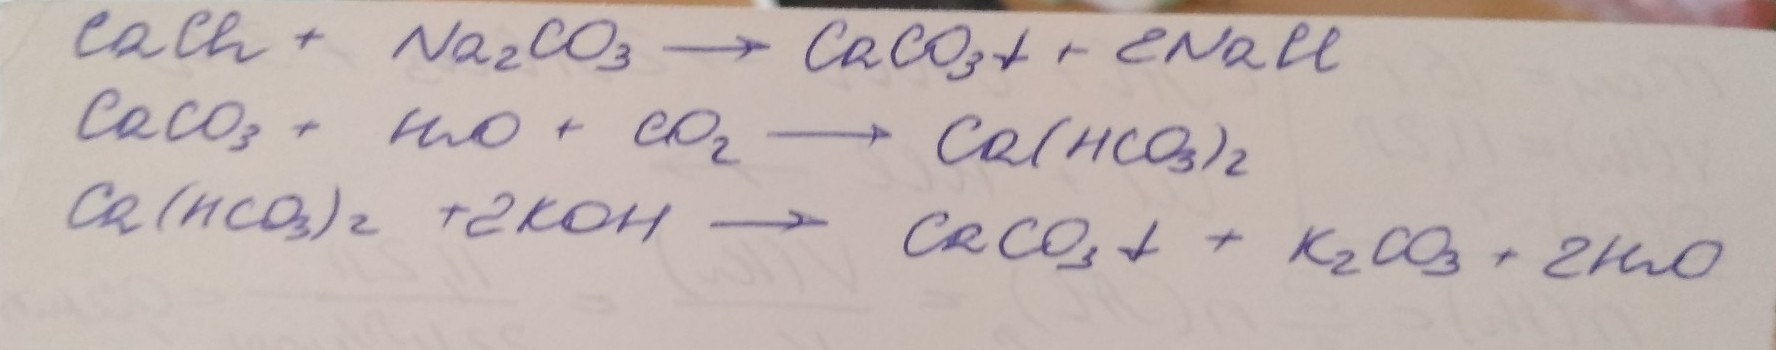 CaCl₂ + Na₂CO₃ → CaCO₃↓ + 2NaCl
CaCO₃ + H₂O + CO₂ → Ca(HCO₃)₂
Ca(HCO₃)₂ + 2KOH → CaCO₃↓ + K₂CO₃ + 2H₂O